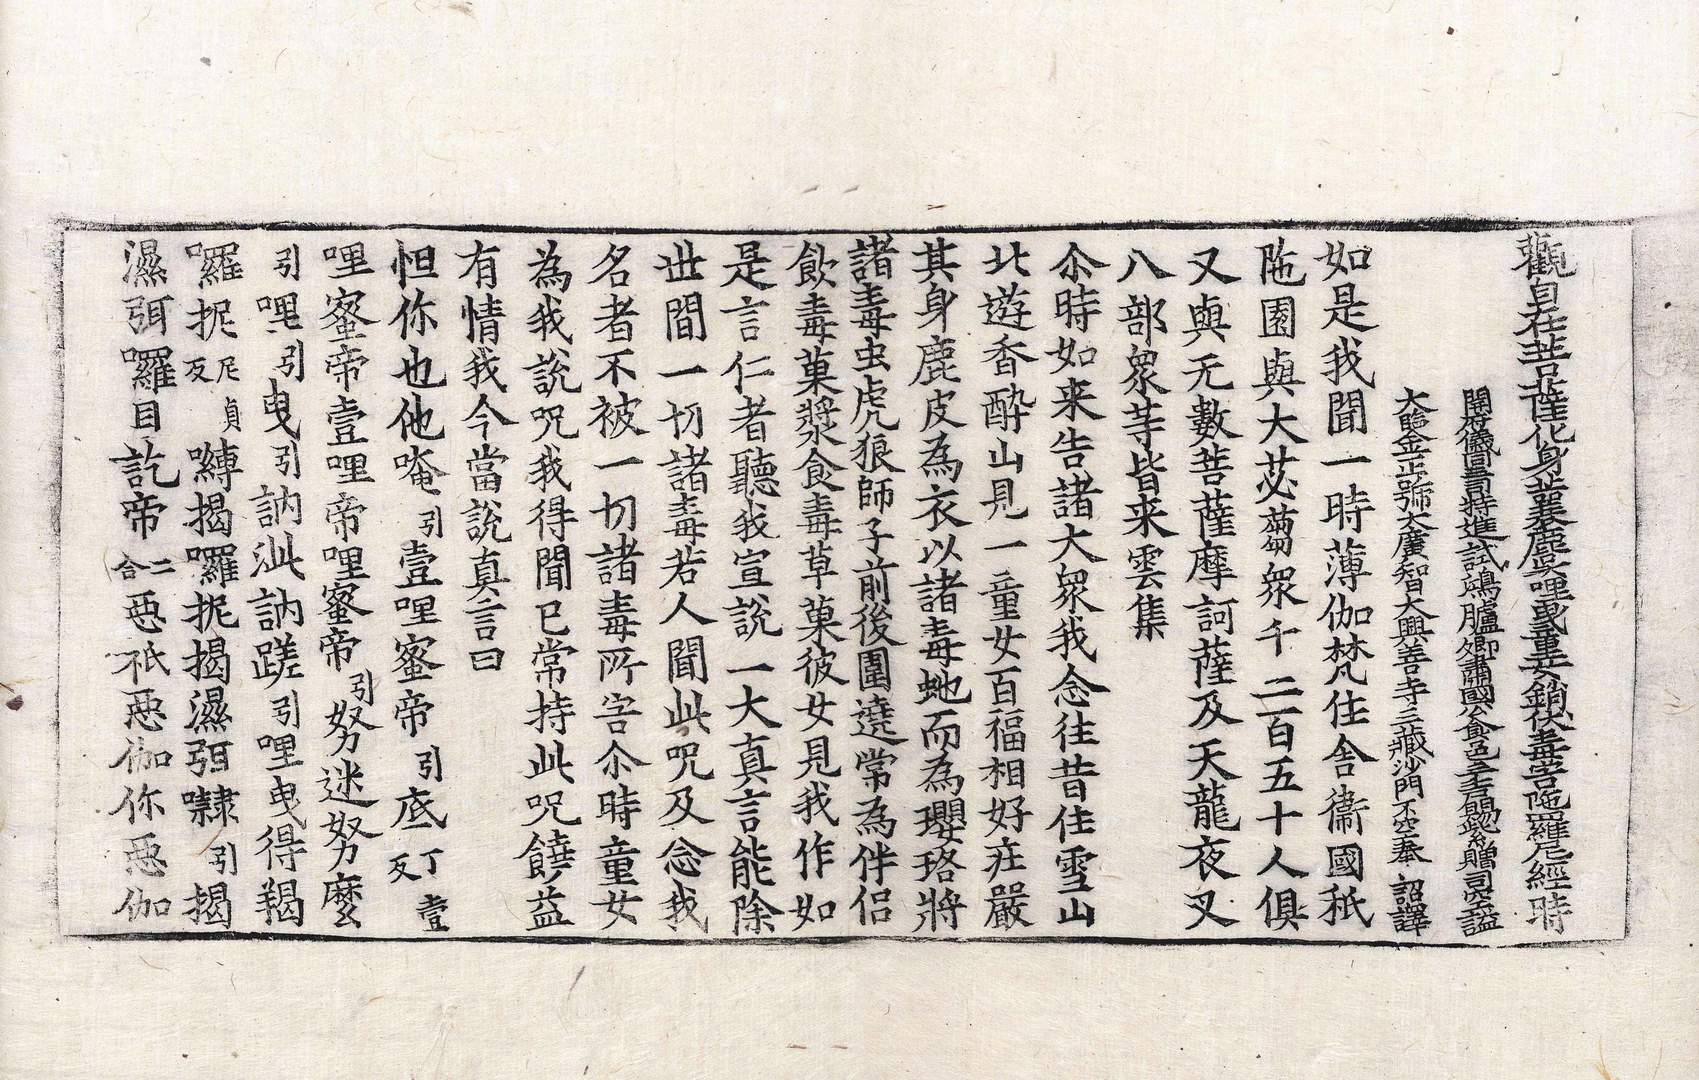 觀自在菩薩化身蘘麌哩曳童女銷伏毒害陁羅尼經 時
開府儀同三司特進試鴻臚卿肅國公食邑三千戶賜紫贈司空謚
大鑒正號大廣智大興善寺三藏沙門不空奉 詔譯
如是我聞一時薄伽梵住舍衛國秖
陁園與大苾蒭衆千二百五十人俱
又與无數菩薩摩訶薩及天龍夜叉
八部衆等皆来雲集
尒時如来告諸大衆我念往昔住雪山
北遊香醉山見一童女百福相好莊嚴
其身鹿皮為衣以諸毒虵而為瓔珞將
諸毒虫虎狼師子前後圍遶常為伴侣
飲毒菓漿食毒草菓彼女見我作如
是言仁者聽我宣說一大真言能除
丗間一切諸毒若人聞此咒及念我
名者不被一切諸毒所害尒時童女
為我說咒我得聞已常持此咒饒益
有情我今當說真言曰
怛你也他唵引壹哩蜜帝引底丁壹反
哩蜜帝壹哩帝哩蜜帝引努迷努麼
引哩引曳引訥泚訥蹉引哩曳得羯
囉抳尼貞反嚩揭囉抳揭濕弭㘑引揭
濕弭囉目訖帝二合惡祇惡伽你惡伽